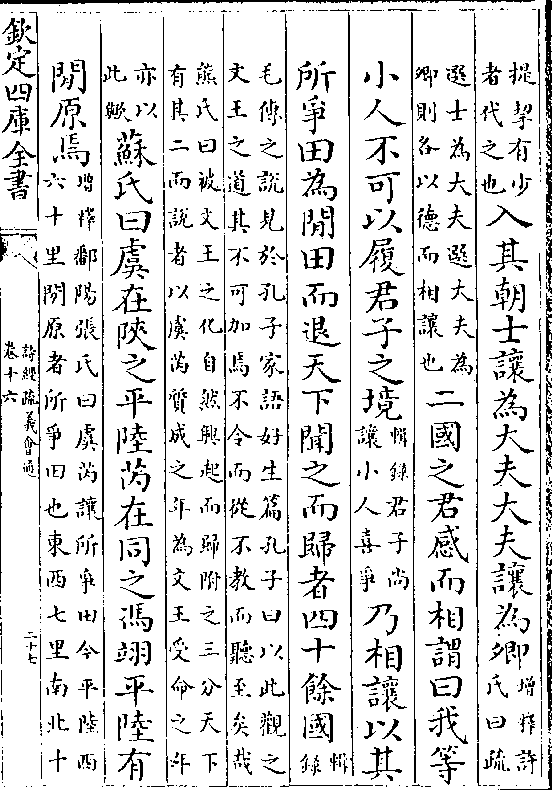 提挈有少者代之也入其朝士讓為大夫大夫讓為卿增釋許氏曰疏
選士為大夫選大夫為卿則各以德而相讓也二國之君感而相謂曰我等
小人不可以履君子之境輯錄君子尚讓小人喜爭乃相讓以其
所爭田為閒田而退天下聞之而歸者四十餘國輯錄
毛傳之說見於孔子家語好生篇孔子曰以此觀之
文王之道其不可加焉不令而從不教而聽至矣哉
熊氏曰被文王之化自然興起而歸附之三分天下
有其二而說者以虞芮質成之年為文王受命之年
亦以此歟蘇氏曰虞在陝之平陸芮在同之馮翊平陸有
閒原焉增釋鄱陽張氏曰虞芮讓所爭田今平陸西六十里閒原者所爭田也東西七里南北十
欽定四庫全書
詩經疏義會通
卷十六
二十七